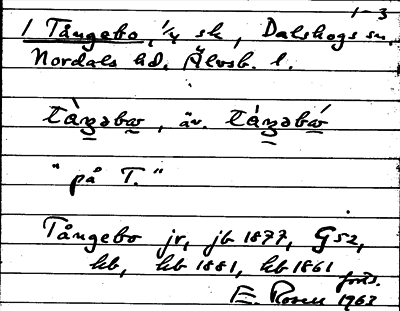 1-3
1 Tångebo, 1/4 sk, Dalskogs sn,
Nordals hd, Älvsb. l.
tàŋəbω, äv. tàŋəbώ
"på T."
Tångebo jr, jb 1877, G52,
hb, kb 1881, kb 1861
forts.
E. Rosell 1963